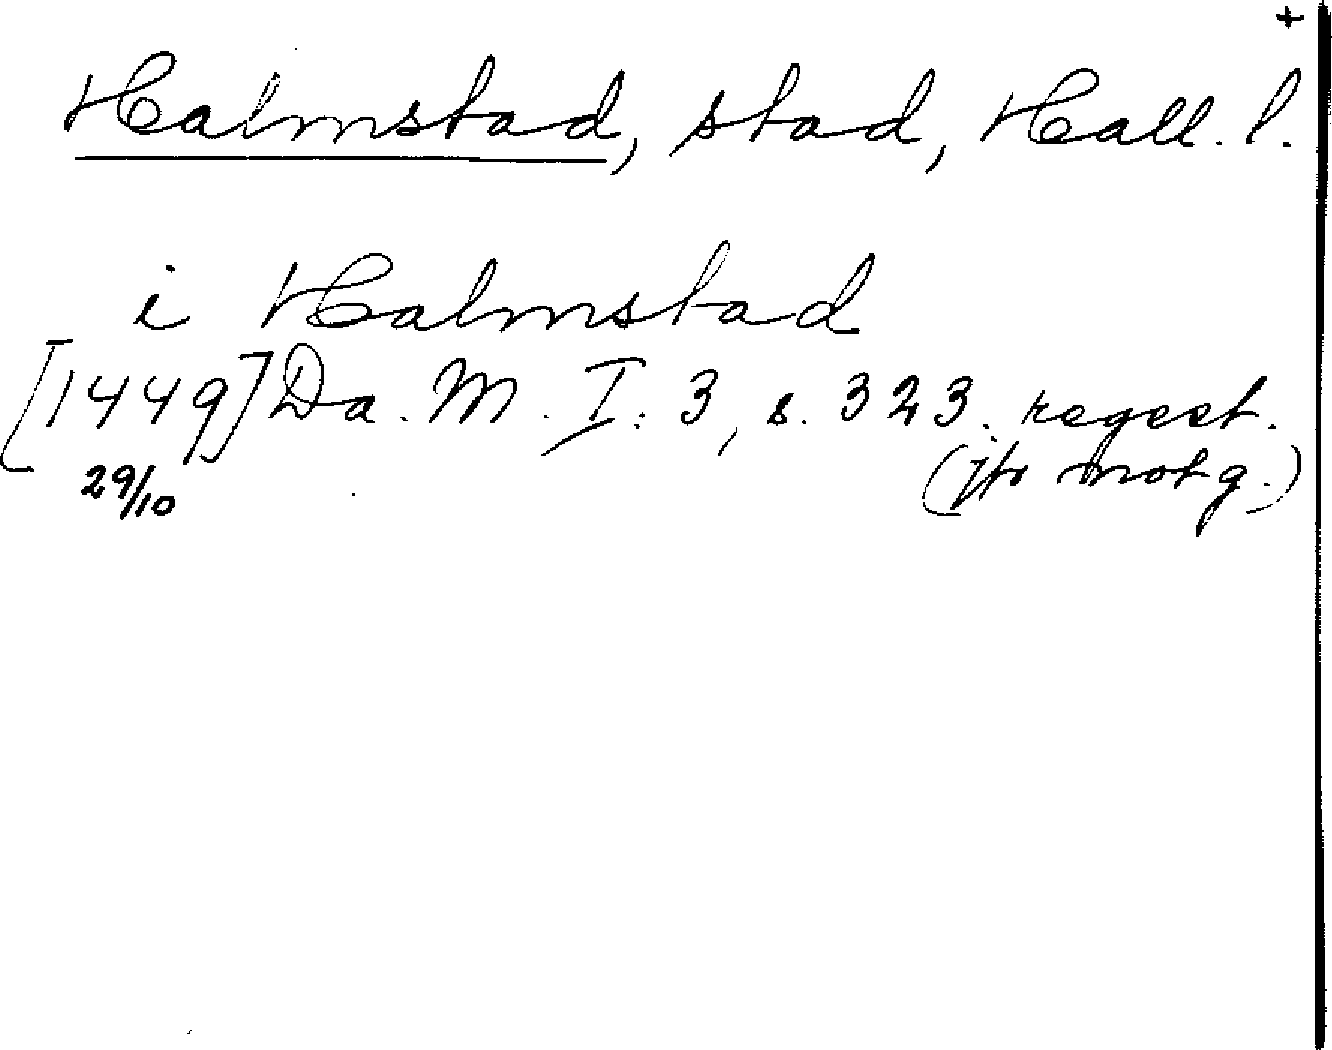 +
Halmstad, stad, Hall. l.
i Halmstad
[1449] Da. M. I: 3, s. 323. regest.
29/10 (jfr motg.)